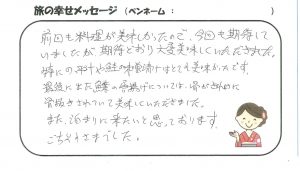 旅の幸せメッセージ (ペンネーム : )
前回も料理が美味しかったので、今回も期待して
いましたが 期待どおり大変美味しくいただきました。
特に の 汁や鮭の 焼はとても美味かったです。
最後にまた鰻の については、骨がきれいに
されていて美味しくいただきました。
また、泊まりに来たいと思っております。
ごちそうさまでした。